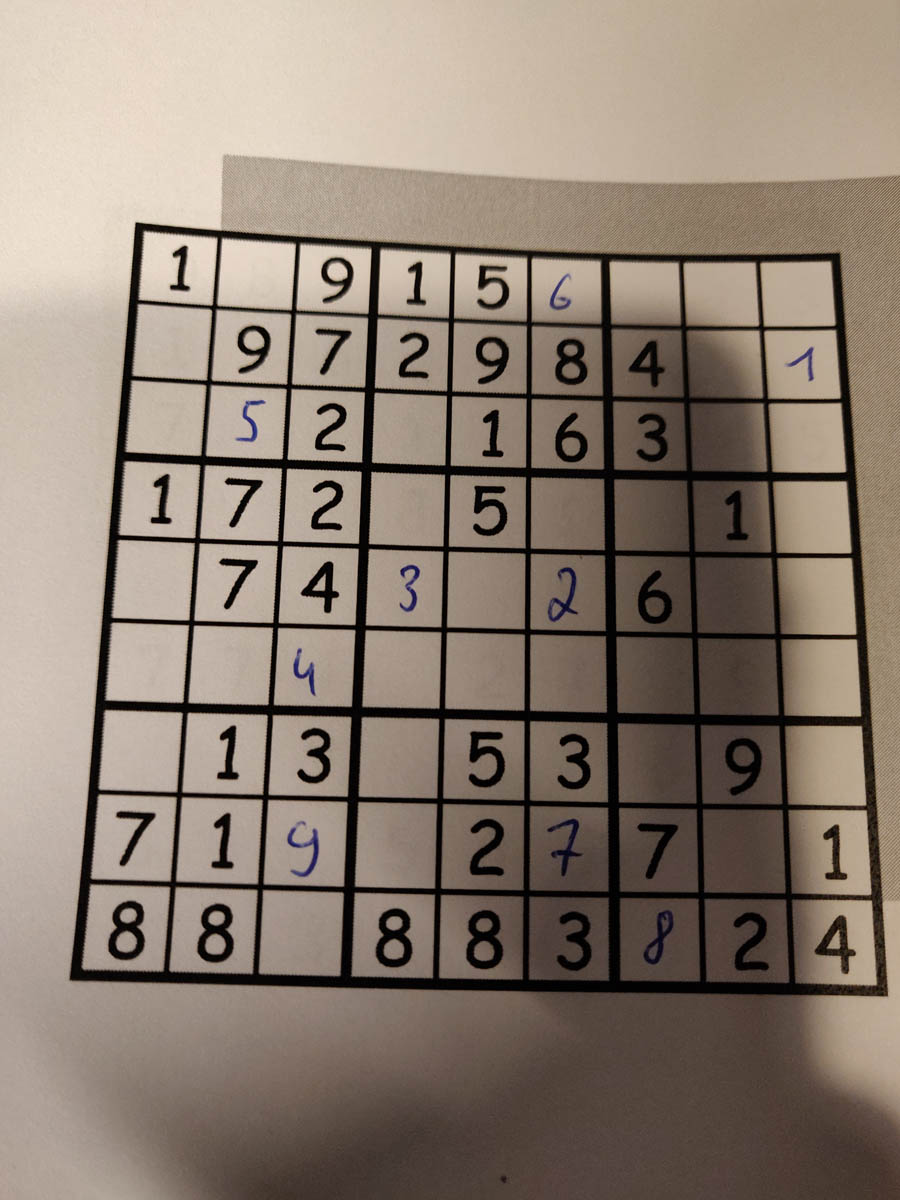 1 9 1 5 6
9 7 2 9 8 4 1
5 2 1 6 3
1 7 2 5 1
7 4 3 2 6
4
1 3 5 3 9
7 1 9 2 7 7 1
8 8 8 8 3 8 2 4